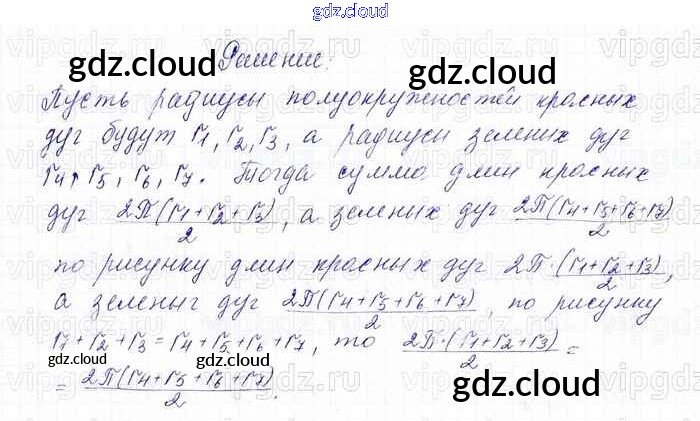 gdz.cloud
Решение:
gdz.cloud gdz.cloud
Пусть радиусы полуокружностей красных
дуг будут r1, r2, r3, а радиусы зеленых дуг
r4, r5, r6, r7. Тогда сумма длин красных
дуг 2П(r1+r2+r3)/2, а зеленых дуг 2П(r4+r5+r6+r7)/2
по рисунку длин красных дуг 2П·(r1+r2+r3)/2,
а зеленыг дуг 2П(r4+r5+r6+r7)/2, по рисунку
r1+r2+r3=r4+r5+r6+r7, то 2П·(r1+r2+r3)/2=
gdz.cloud gdz.cloud
=2П(r4+r5+r6+r7)/2.
gdz.cloud